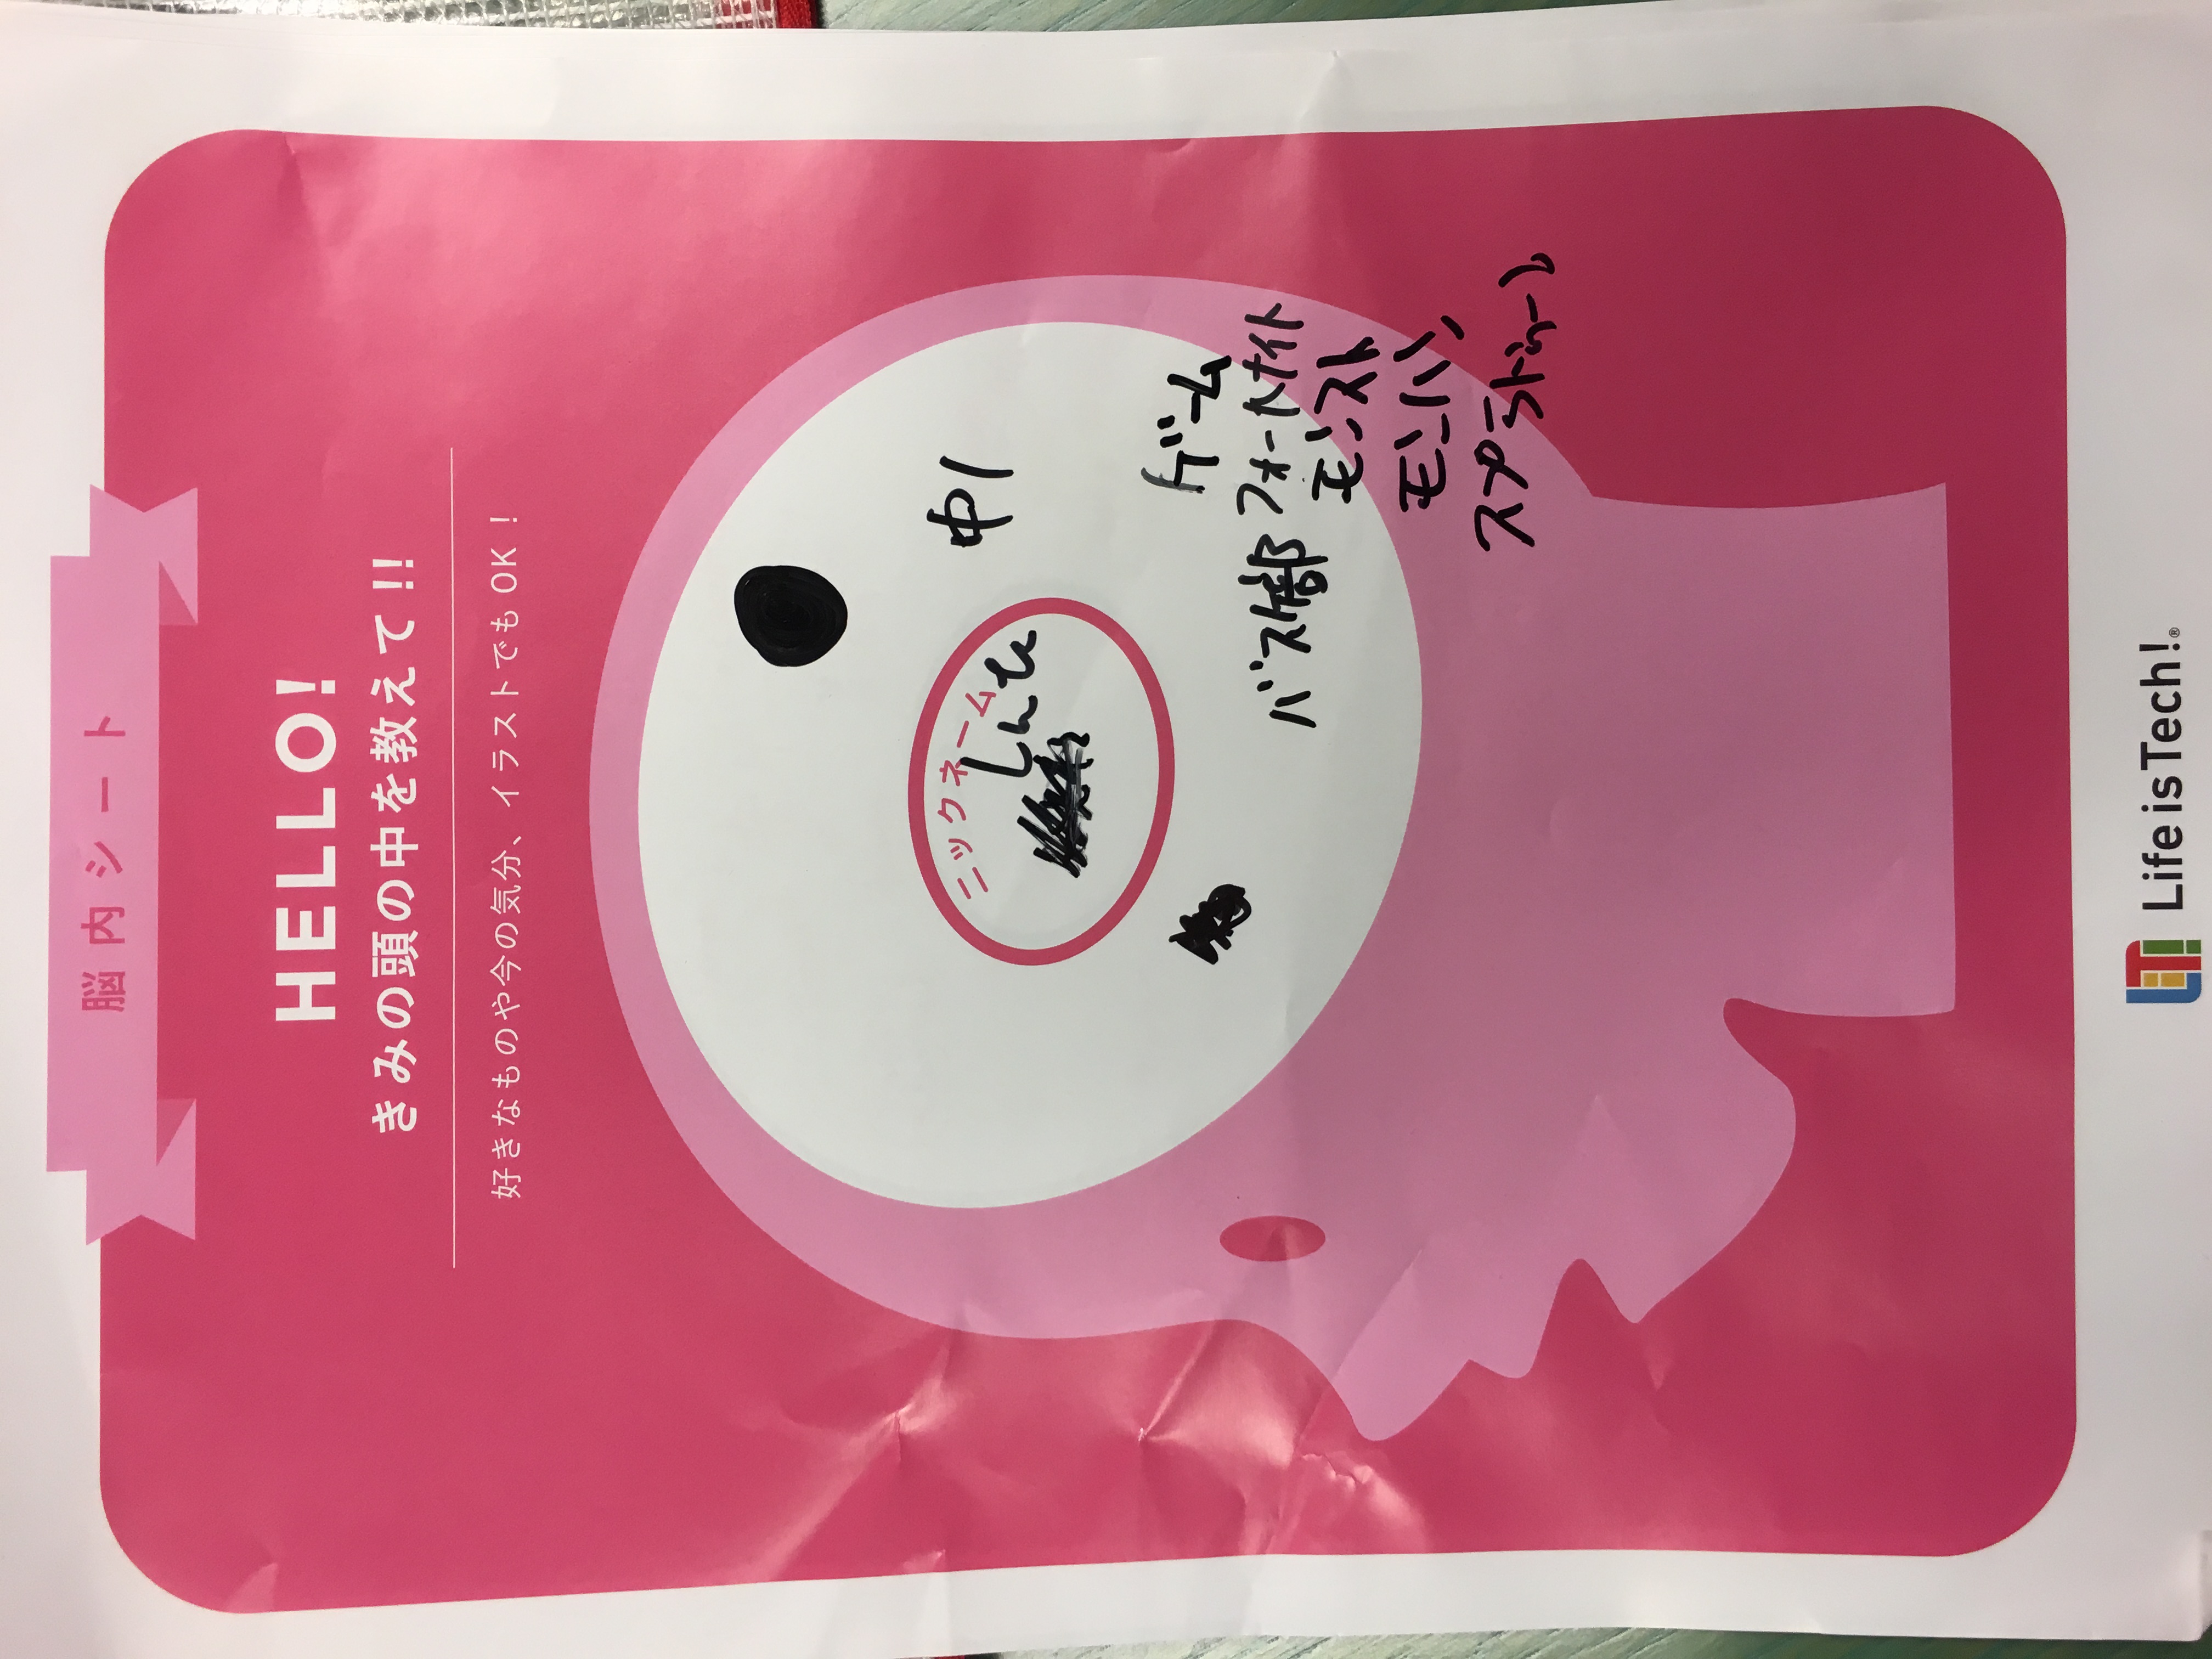 脳内シート
HELLO!
きみの頭の中を教えて!!
好きなものや今の気分、イラストでもOK!
ニックネーム
しんた
中1
ゲーム
バスケ部 フォートナイト
モンスト
モンハン
スプラトゥーン
Life is Tech!®